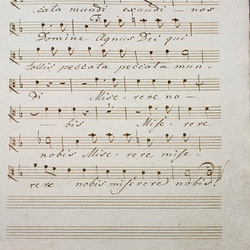 cata mundi exaudi - nos
Domine Agnus Dei qui
tollis peccata peccata mun-
di Mise-rere no-
- bis Mise-rere
nobis Mise-rere mise
rere nobis miserere nobis